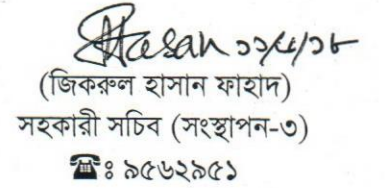 Hasan ১১/৫/১৮
(জিকরুল হাসান ফাহাদ)
সহকারী সচিব (সংস্থাপন-৩)
☎ঃ ৯৫৬২৯৫১